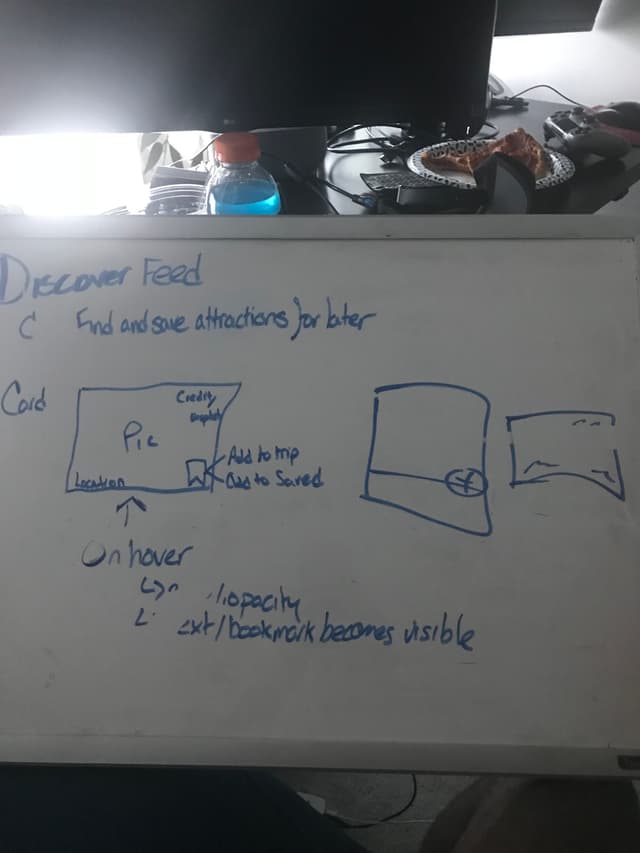 Discover Feed
C Find and save attractions for later
Card
Credit/
Pic
Location
Add to trip
Add to Saved
On hover
opacity
/bookmark becomes visible